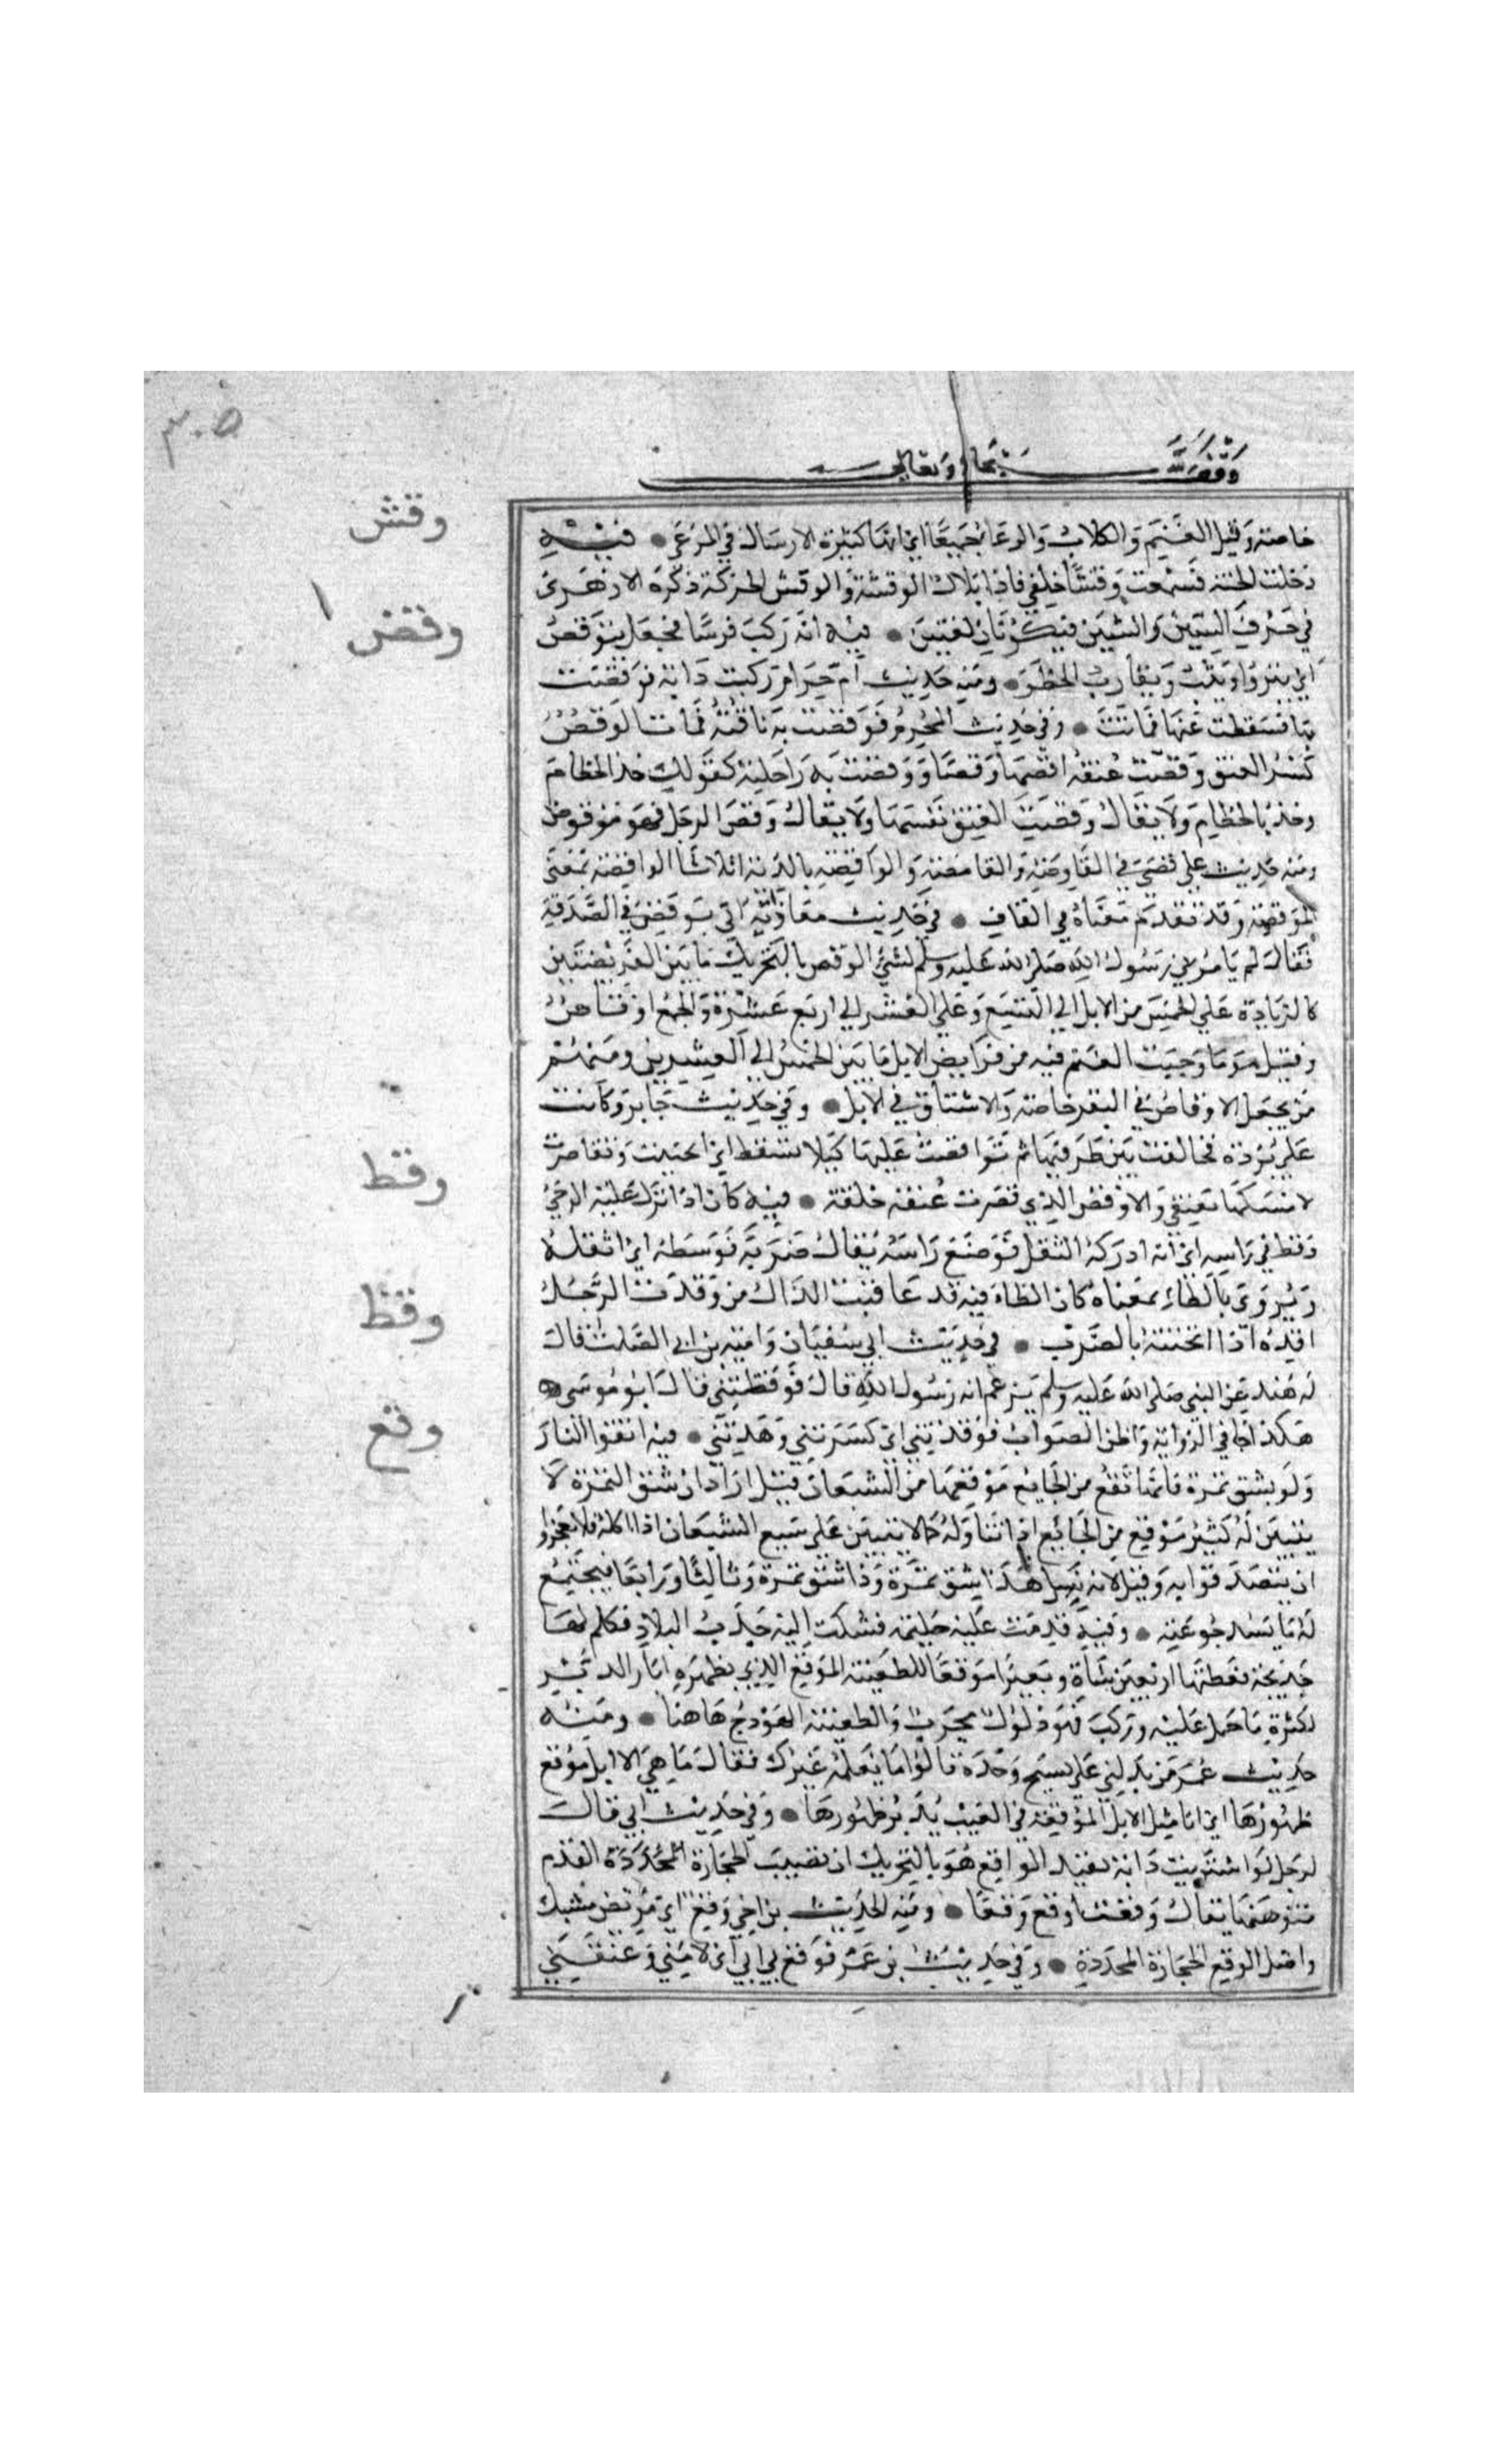 ٣٠٥
وقف لله سبحانه وتعالى
خاصة وقيل الغنم والكلاب والرعا جميعا اي انها كثيرة الارسال في المرعى • فيه
دخلت الجنة فسمعت وقشا خلفي فاذا بلال الوقشة والوقش الحركة ذكره الازهري
في حرف السين والشين فيكونان لغتين • فيه انه ركب فرسا فجعل يتوقص
اي ينزوا ويثب ويقارب الخطو • ومنه حديث ام حرام ركبت دابة فوقصت
بها فسقطت عنها فماتت • وفي حديث المحرم فوقصت به ناقته فمات الوقص
كسر العنق وقصت عنقه اقصها وقصا ووقصت به راحلته كقولك خذ الخطام
وخذ بالخطام ولا يقال وقصت العنق نفسها ولا يقال وقص الرجل فهو موقوص
ومنه حديث علي قضى في القارصة والقامصة والواقصة بالدية اثلاثا الواقصة بمعنى
الموقوصة وقد تقدم معناه في القاف • في حديث معاذ انه اتي بوقص في الصدقة
فقال لم يامرني رسول الله صلى الله عليه وسلم بشئ الوقص بالتحريك ما بين الفريضتين
كالزيادة على الخمس من الابل الي التسع وعلي العشر الي اربع عشرة والجمع اوقاص
وقيل هو ما وجبت الغنم فيه من فرايض الابل ما بين الخمس الي العشرين ومنهم
من يجعل الاوقاص في البقر خاصة والاشناق في الابل • وفي حديث جابر وكانت
علي بردة فخالفت بين طرفيها ثم تواقصت عليها كيلا تسقط اي انحنيت وتقاصرت
لامسكها بعنقي والاوقص الذي قصرت عنقه خلقة • فيه كان اذا نزل عليه الوحي
وقط في راسه اي انه ادركه الثقل فوضع راسه يقال ضربه فوقطه اي اثقله
ويروى بالظاء بمعناه كان الظاء فيه قد عاقبت الذال من وقذت الرجل
اقذه اذا اثخنته بالضرب • في حديث ابي سفيان وامية بن ابي الصلت قالت
له هند عن النبي صلى الله عليه وسلم يزعم انه رسول الله قال فوقظتني قال ابو موسى
هكذا في الرواية واظن الصواب فوقذتني اي كسرتني وهدتني • فيه اتقوا النار
ولو بشق تمرة فانها تقع من الجايع موقعها من الشبعان قيل اراد ان شق التمرة لا
يتبين له كثير موقع من الجايع اذا تناوله كما لا يتبين على شبع الشبعان اذا اكله فلا تعجزوا
ان يتصدقوا به وقيل لانه يسال هذا شق تمرة وذا شق تمرة وثالثا ورابعا فيجتمع
له ما يسد جوعته • وفيه قدمت عليه حليمة فشكت اليه جدب البلاد فكلم لها
خديجة فاعطتها اربعين شاة وبعيرا موقعا للظعينة الموقع الذي بظهره اثار الدبر
لكثرة ما حمل عليه وركب فهو ذلول مجرب والظعينة الهودج هاهنا • ومنه
حديث عمر من يدلني علي نسيج وحده قالوا ما نعلمه غيرك فقال ما هي الا ابل موقع
ظهورها اي انا مثل الابل الموقعة في العيب بدبر ظهورها • وفي حديث ابي قال
لرجل لو اشتريت دابة تقيك الوقع هو بالتحريك ان تصيب الحجارة المحددة القدم
فتوهنها يقال وقعت اوقع وقعا • ومنه الحديث بن اخي وقع اي مريض مشتك
واصل الوقع الحجارة المحددة • وفي حديث بن عمر فوقع بي ابي اي لامني وعنفني
وقش
وقص
وقط
وقظ
وقع